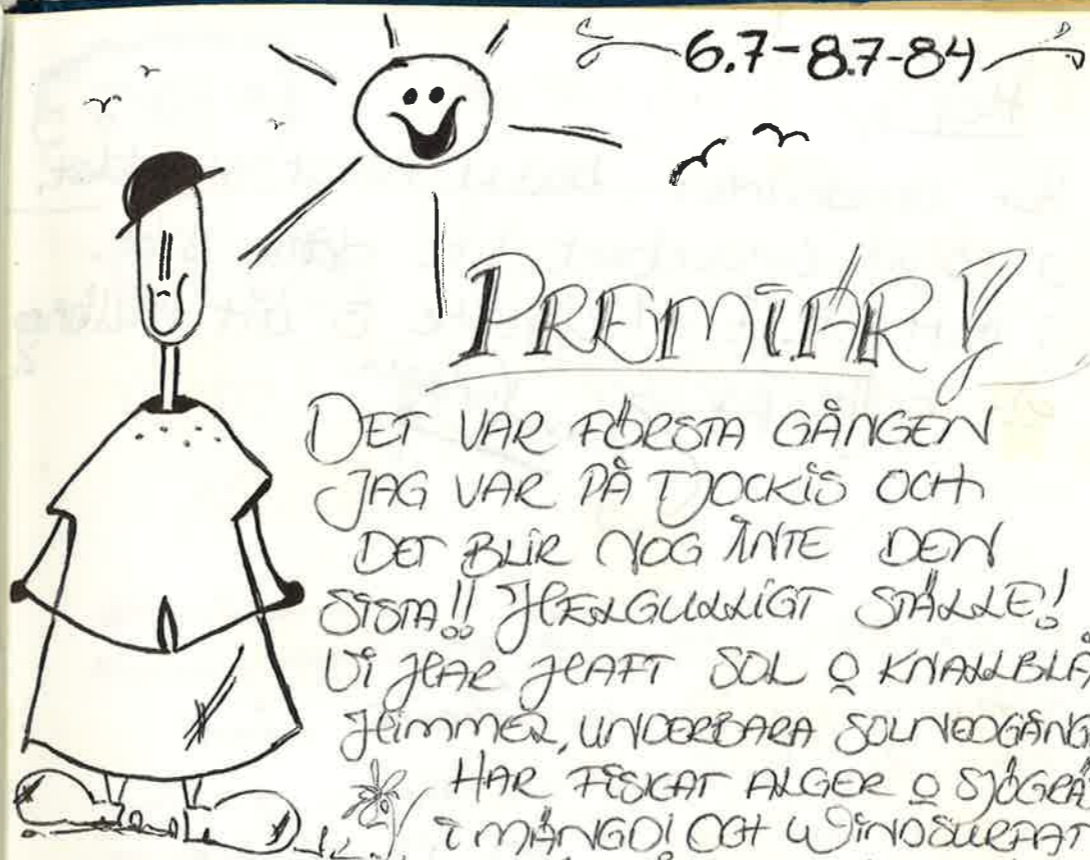 6.7-8.7-84
PREMIÄR!
DET VAR FÖRSTA GÅNGEN
JAG VAR PÅ TJOCKIS OCH
DET BLIR NOG INTE DEN
SISTA!! HELGULLIGT STÄLLE!
VI HAR HAFT SOL O KNALLBLÅ
HIMMEL, UNDERBARA SOLNEDGÅNG
HAR FISKAT ALGER O SJÖGRÄ
I MÄNGD! OCH WINDSURFAT